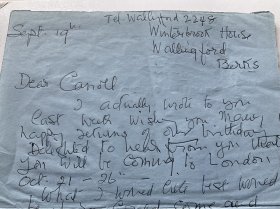 Tel. Wallingford 2248
Sept. 19th Winterbrook House
Wallingford
Berks
Dear Carroll
I actually wrote to you
last week wishing you many
happy returns of our birthday.
Delighted to hear from you that
you will be coming to London
Oct. 21 - 26
What I would like best would